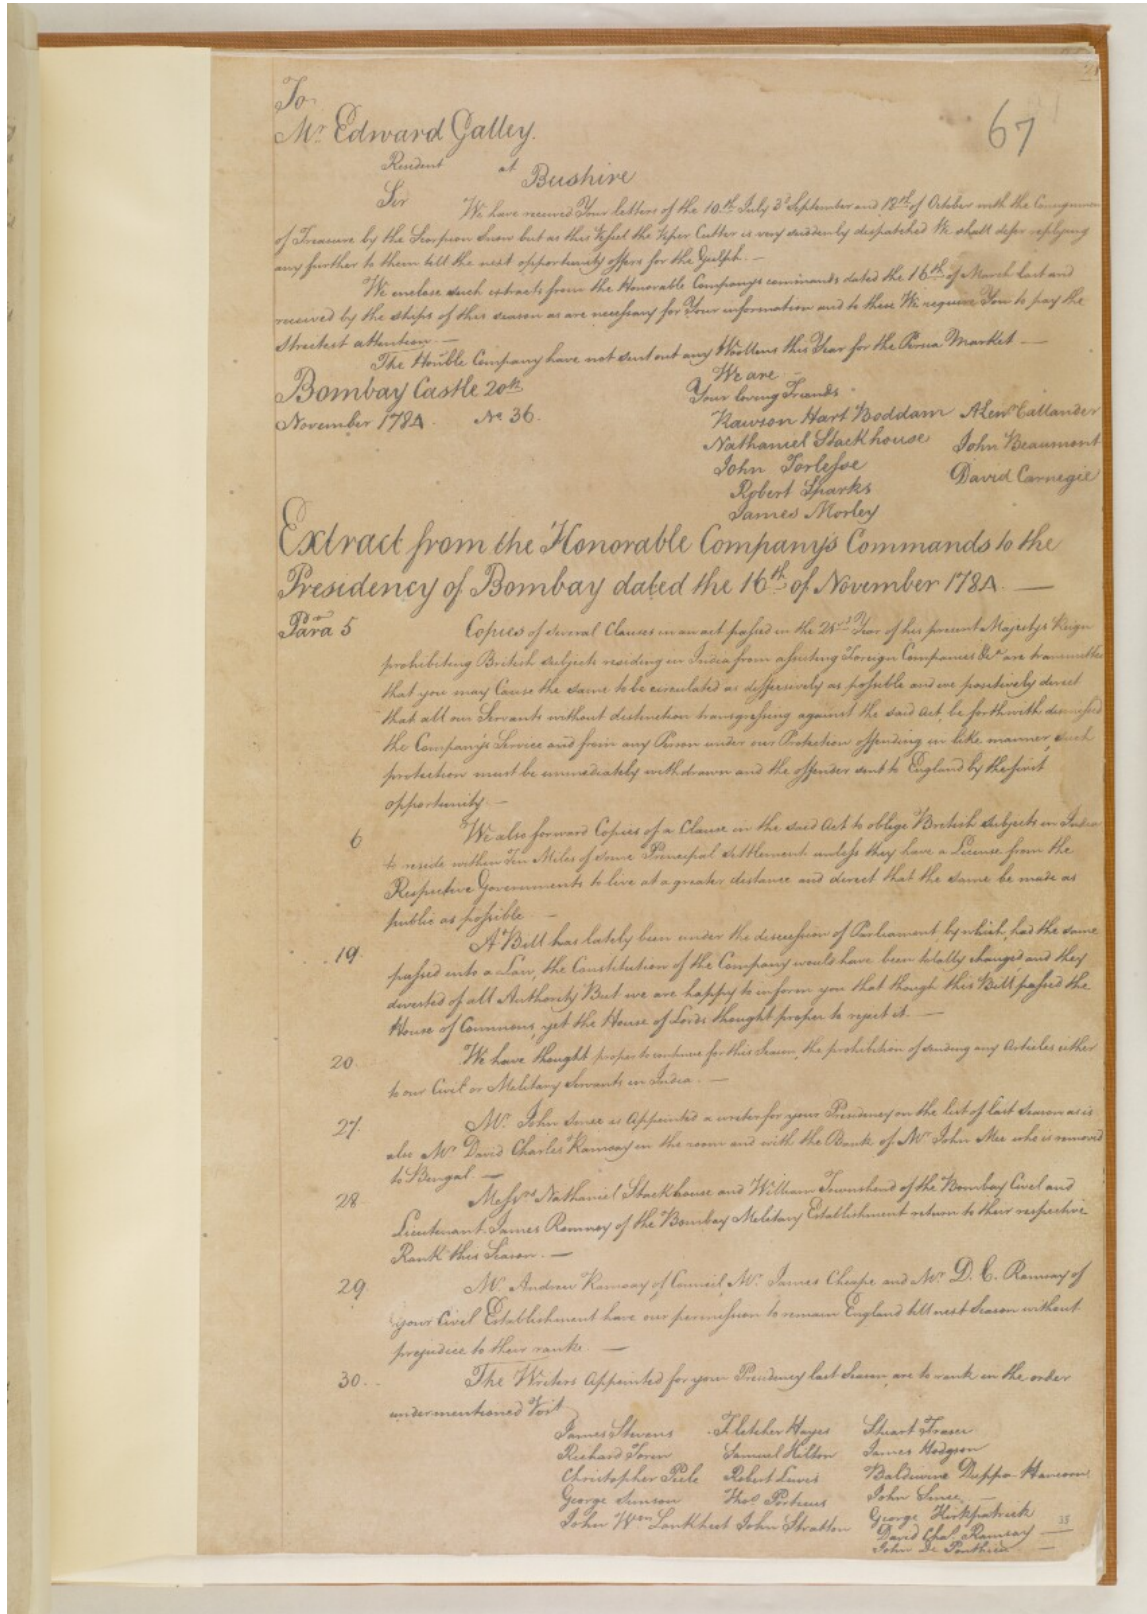 67
To
Mr. Edward Galley.
Resident at Bushire
Sir We have received Your letters of the 10th July 3d September and 12th of October with the Consignment
of Treasure by the Scorpion Snow but as this Vessel the Viper Cutter is very suddenly dispatched We shall defer replying
any further to them till the next opportunity offers for the Gulph. —
We enclose such extracts from the Honorable Companys commands dated the 16th of March last and
received by the ships of this season as are necessary for Your information and to these We require You to pay the
strictest attention. —
The Honble Company have not sent out any Woollens this Year for the Persia Market —
We are —
Your loving Friends
Bombay Castle 20th
November 1784. No 36.
Rawson Hart Boddam Alexr Callander
Nathaniel Stackhouse John Beaumont
John Torlesse David Carnegie
Robert Sparks
James Morley
Extract from the Honorable Company's Commands to the
Presidency of Bombay dated the 16th of November 1784. —
Para 5 Copies of several Clauses in an act passed in the 21st Year of his present Majestys Reign
prohibiting British subjects residing in India from assisting Foreign Companies &ca are transmitted
that you may Cause the same to be circulated as diffusively as possible and we positively direct
that all our Servants without distinction transgressing against the said Act, be forthwith dismissed
the Company's Service and from any Person under our Protection offending in like manner, such
protection must be immediately withdrawn and the offender sent to England by the first
opportunity. —
6 We also forward Copies of a Clause in the said Act to oblige British subjects in India
to reside within Ten Miles of some Principal settlement unless they have a License from the
Respective Governments to live at a greater distance and direct that the same be made as
public as possible —
19. A Bill has lately been under the discussion of Parliament by which, had the same
passed into a Law, the Constitution of the Company would have been totally changed and they
divested of all Authority But we are happy to inform you that though this Bill passed the
House of Commons, yet the House of Lords thought proper to reject it. —
20. We have thought proper to continue for this Season, the prohibition of sending any Articles either
to our Civil or Military Servants in India. —
27. Mr. John Innee is Appointed a writer for your Presidency on the list of last season as is
also Mr David Charles Ramsay in the room and with the Rank of Mr John Mee who is removed
to Bengal —
28 Messrs Nathaniel Stackhouse and William Townshend of the Bombay Civil and
Lieutenant James Romney of the Bombay Military Establishment return to their respective
Rank this Season. —
29 Mr. Andrew Ramsay of Council, Mr. James Cheape and Mr D. C. Ramsay of
your Civil Establishment have our permission to remain England till next Season without
prejudice to their ranks. —
30. The Writers Appointed for your Presidency last season, are to rank in the order
undermentioned Vizt
James Stevens Fletcher Hayes Stuart Fraser
Richard Torin Samuel Hilton James Hodgson
Christopher Peele Robert Lewes Baldwine Duppa Hancorne
George Simson Thos Porteous John Innee —
John Wm Lankheet John Stratton George Kirkpatrick
David Chas. Ramsay —
John De Ponthieu —
35